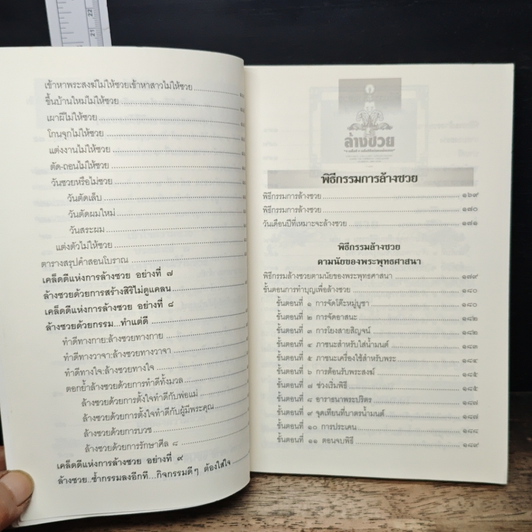 เข้าหาพระสงฆ์ไม่ให้ซวยเข้าหาสาวไม่ให้ซวย
ขึ้นบ้านใหม่ไม่ให้ซวย
เผาผีไม่ให้ซวย
โกนจุกไม่ให้ซวย
แต่งงานไม่ให้ซวย
ตัด-ถอนไม่ให้ซวย
วันซวยหรือไม่ซวย
วันตัดเล็บ
วันตัดผมใหม่
วันสระผม
แต่งตัวไม่ให้ซวย
ตารางสรุปคำสอนโบราณ
เคล็ดดีแห่งการล้างซวย อย่างที่ ๗
ล้างซวยด้วยการสร้างสิริไม่ดูแคลน
เคล็ดดีแห่งการล้างซวย อย่างที่ ๘
ล้างซวยด้วยกรรม...ทำแต่ดี
ทำดีทางกาย:ล้างซวยทางกาย
ทำดีทางวาจา:ล้างซวยทางวาจา
ทำดีทางใจ:ล้างซวยทางใจ
ตอกย้ำล้างซวยด้วยการทำดีทั้งมวล
ล้างซวยด้วยการตั้งใจทำดีกับพ่อแม่
ล้างซวยด้วยการตั้งใจทำดีกับผู้มีพระคุณ
ล้างซวยด้วยการบวช
ล้างซวยด้วยการรักษาศีล ๘
เคล็ดดีแห่งการล้างซวย อย่างที่ ๙
ล้างซวย...ซ้ำกรรมลงอีกที...กิจกรรมดีๆ ต้องใส่ใจ
ล้างซวย
พิธีกรรมการล้างซวย
พิธีกรรมการล้างซวย ๑๖๙
พิธีกรรมการล้างซวย ๑๗๐
วันเดือนปีที่เหมาะจะล้างซวย ๑๗๑
พิธีกรรมล้างซวย
ตามนัยของพระพุทธศาสนา
พิธีกรรมล้างซวยตามนัยของพระพุทธศาสนา ๑๗๙
ขั้นตอนการทำบุญเพื่อล้างซวย ๑๘๐
ขั้นตอนที่ ๑ การจัดโต๊ะหมู่บูชา ๑๘๐
ขั้นตอนที่ ๒ การจัดอาสนะ ๑๘๒
ขั้นตอนที่ ๓ การโยงสายสิญจน์ ๑๘๒
ขั้นตอนที่ ๔ ภาชนะสำหรับใส่น้ำมนต์
ขั้นตอนที่ ๕ ภาชนะเครื่องใช้สำหรับพระ ๑๘๔
ขั้นตอนที่ ๖ การต้อนรับพระสงฆ์ ๑๘๕
ขั้นตอนที่ ๗ ช่วงเริ่มพิธี ๑๘๕
ขั้นตอนที่ ๘ อาราธนาพระปริตร ๑๘๗
ขั้นตอนที่ ๙ จุดเทียนที่บาตรน้ำมนต์ ๑๘๗
ขั้นตอนที่ ๑๐ การประเคน ๑๘๘
ขั้นตอนที่ ๑๑ ตอนจบพิธี ๑๘๙